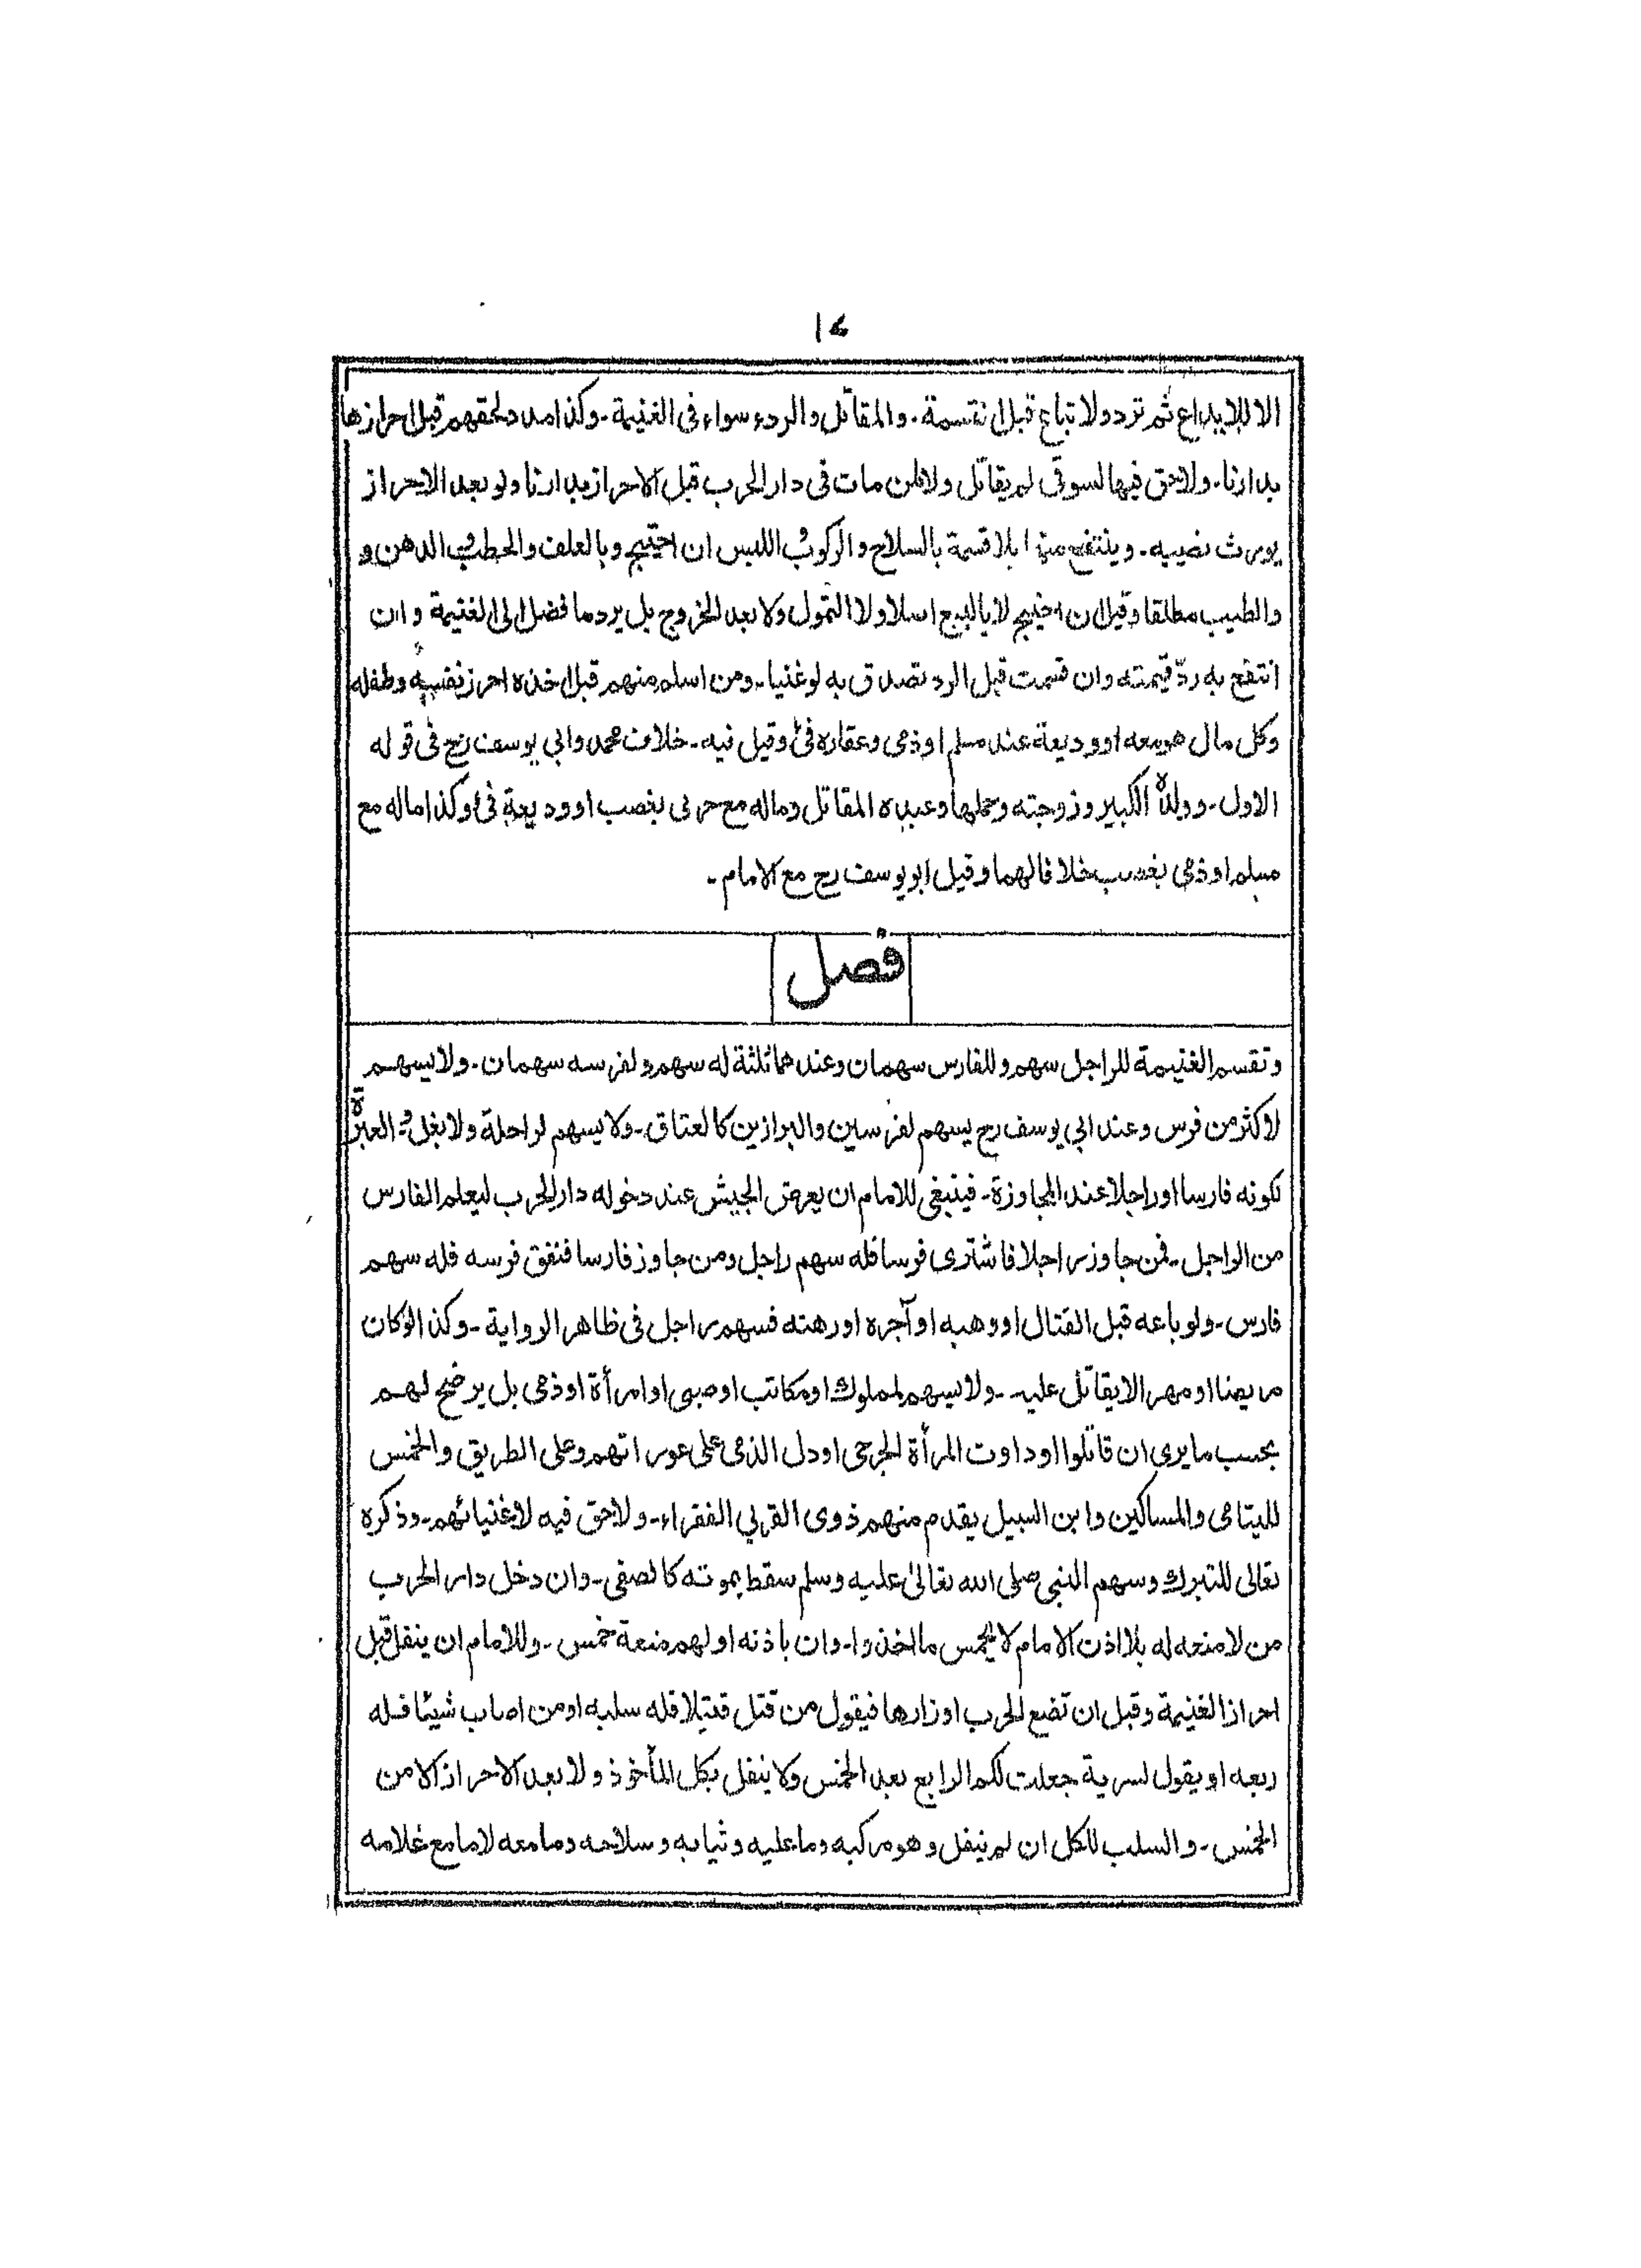 ١٤
الا للايداع ثم ترد ولا تباع قبل ان نقتسمة . والمقاتل والردء سواء فى الغنيمة - وكذا مدد لحقهم قبل احرازها
بدارنا . ولا حق فيها لسوقى لم يقاتل ولا لمن مات فى دار الحرب قبل الاحراز بدارنا ولو بعد الاحراز
يورث نصيبه - وينتفع منها بلا قسمة بالسلاح والركوب و اللبس ان احتيج وبالعلف والحطب و الدهن و
والطيب مطلقا وقيل ان احتيج لا بالبيع اصلا ولا التمول ولا بعد الخروج بل يرد ما فضل الى الغنيمة وان
انتفع به ردّ قيمته وان قسمت قبل الرد تصدق به لو غنيا - ومن اسلم منهم قبل اخذه احرز نفسه وطفله
وكل مال هو معه او وديعة عند مسلم او ذمى وعقاره فئ وقيل فيه - خلاف محمد وابي يوسف رح فى قوله
الاول - وولده الكبير وزوجته وحملها وعبده المقاتل وماله مع حربى بغصب او وديعة فئ وكذا ماله مع
مسلم او ذمى بغصب خلافا لهما وقيل ابو يوسف رح مع الامام -
فصل
وتقسم الغنيمة للراجل سهم وللفارس سهمان وعندهما ثلثة له سهم ولفرسه سهمان - ولا يسهم
لاكثر من فرس وعند ابي يوسف رح يسهم لفرسين والبرازين كالعتاق - ولا يسهم لراحلة ولا بغل و العبرة
لكونه فارسا او راجلا عند المجاوزة - فينبغى للامام ان يعرض الجيش عند دخوله دار الحرب ليعلم الفارس
من الراجل - فمن جاوز راجلا فاشترى فرسا فله سهم راجل ومن جاوز فارسا فنفق فرسه فله سهم
فارس - ولو باعه قبل القتال او وهبه او آجره او رهنه فسهم راجل فى ظاهر الرواية - وكذا لو كان
مريضا او مهرا لا يقاتل عليه - ولا يسهم لمملوك او مكاتب او صبى او امرأة او ذمى بل يرضخ لهم
بحسب ما يرى ان قاتلوا او داوت المرأة الجرحى او دل الذمى على عوراتهم وعلى الطريق والخمس
لليتامى والمساكين وابن السبيل يقدم منهم ذوى القربي الفقراء - ولا حق فيه لاغنيائهم - وذكره
تعالى للتبرك وسهم النبى صلى الله تعالىٰ عليه وسلم سقط بموته كالصفى - وان دخل دار الحرب
من لا منعه له بلا اذن الامام لا يخمس ما اخذوا - وان باذنه او لهم منعة خمس - وللامام ان ينفل قبل
احراز الغنيمة وقبل ان تضع الحرب اوزارها فيقول من قتل قتيلا فله سلبه او من اصاب شيئا فله
ربعه او يقول لسرية جعلت لكم الرابع بعد الخمس ولا ينفل بكل المأخوذ ولا بعد الاحراز الا من
الخمس - والسلب للكل ان لم ينفل وهو مركبه وما عليه وثيابه وسلاحه وما معه لا ما مع غلامه